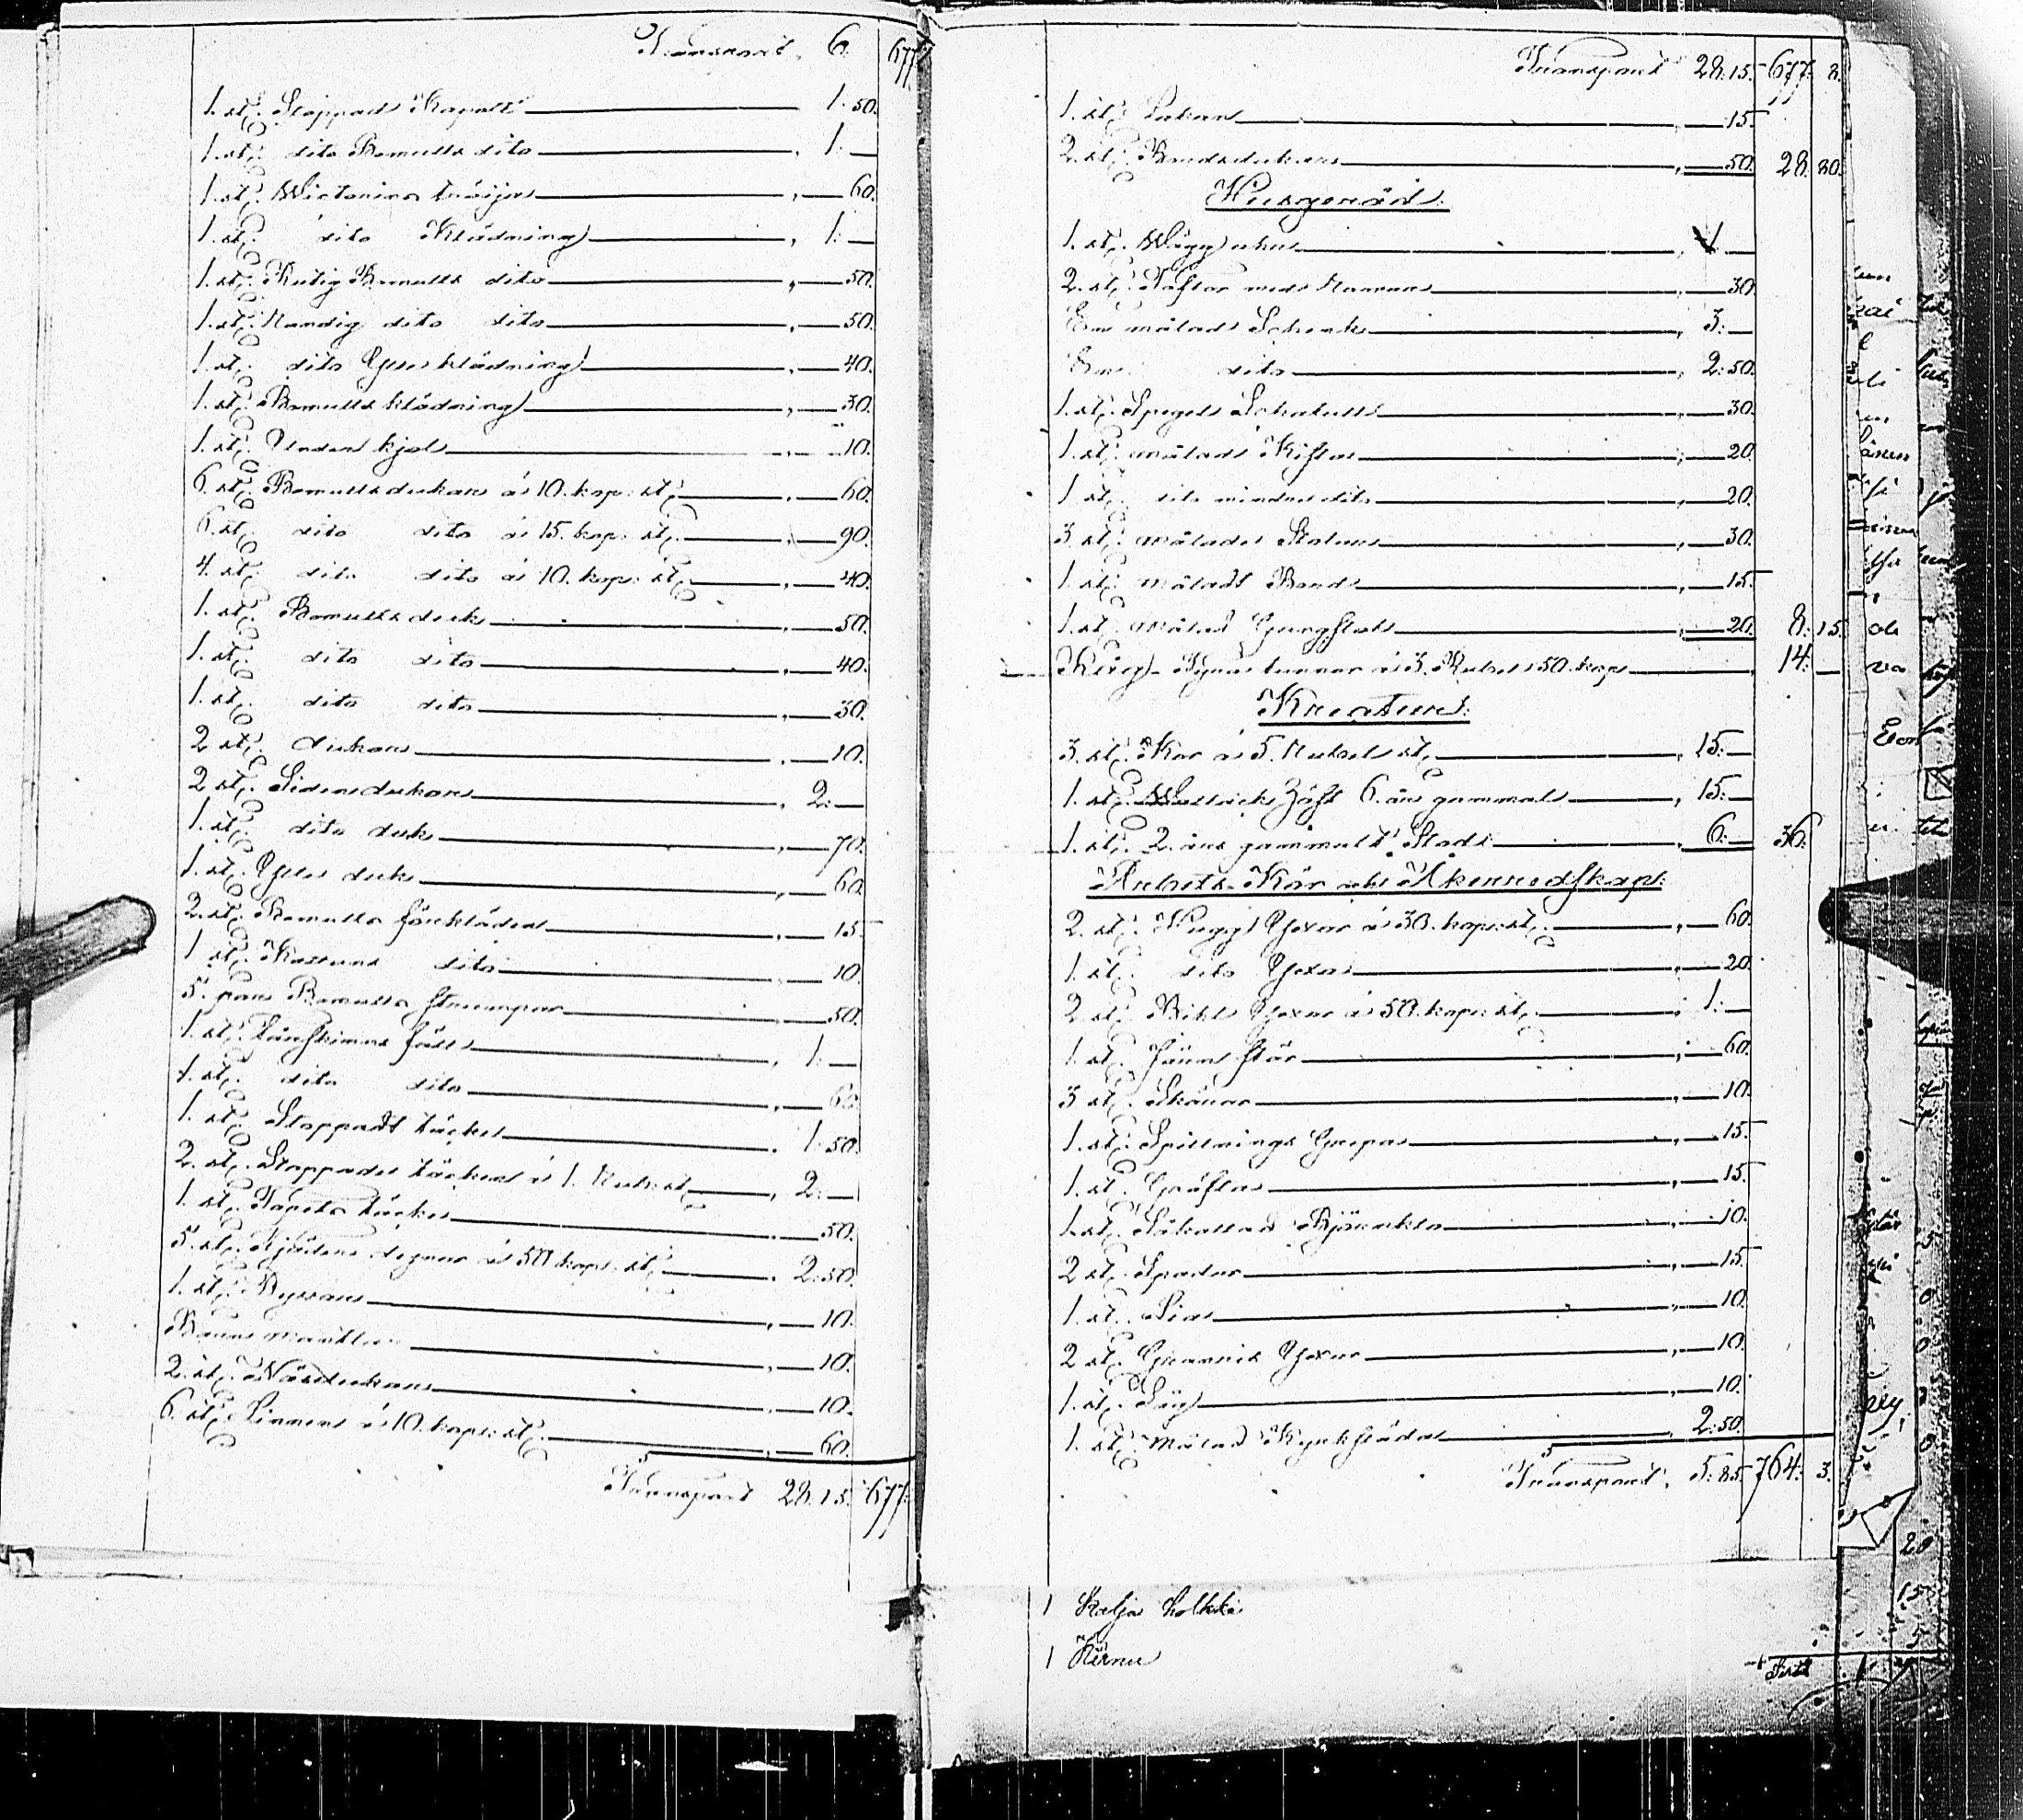 Transport 6. 677
1. st. Stoppad Kapott 1. 50.
1. st. dito Bomulls dito 1. —
1. st. Wictorina tröija 60.
1. st. dito Klädning 1. —
1. st. Rutig Bomulls dito 50.
1. st. Randig dito dito 50.
1. st. dito Ylleklädning 40.
1. st. Bomullsklädning 30.
1. st. Underkjol 10.
6. st. Bomullsdukar á 10. kop: st. 60.
6. st. dito dito á 15. kop: st. 90.
4. st. dito dito á 10. kop: st. 40.
1. st. Bomullsduk 50.
1. st. dito dito 40.
1. st. dito dito 30.
2 st. dukar 10.
2 st. Sidendukar 2: —
1. st. dito duk 70.
1. st. Ylle duk 60.
2. st. Bomulls förkläden 15.
1 st. Kattuns dito 10.
5. par Bomulls strumpor 50.
1. st. Fårskinns fäll 1: —
1. st. dito dito 60.
1. st. Stoppadt täcke 1. 50.
2. st. Stoppade täcken á 1. Rub: st. 2: —
1. st. Tapets täcke 50.
5. st. Fjäders dynor á 50 kop: st. 2: 50.
1. st. 10.
Barns 10.
2. st. Näsdukar 10.
6. st. Linnen á 10. kop: st. 60.
Transport 28. 15. 677.
Transport 28. 15. 677. 8.
1. st. Lakan 15.
2. st. Bordsdukar 50. 28. 80.
Husgeråd:
1. st. Wäggur 1 —
2. st. Taflor med Ramar 30.
Ett måladt Schenk 3: —
Ett dito 2: 50.
1. st. Spegel Schatull 30.
1. st. målad Kista 20.
1 st. dito mindre dito 20.
3. st. målade Stolar 30.
1. st. måladt Bord 15.
1. st. målad Gungstol 20. 8: 15.
Råg Tynnor á 3. Rubel 50. kop: 14. —
Kreatur:
3. st. Kor á 5. Rubel st. 15: —
1. st. Wallack Häst 6. års gammal 15: —
1. st. 2. års gammalt Stod 6. — 36.
Arbets-Kär och Åkerredskap:
2. st. Hugg Yxor á 30. kop: st. 60.
1. st. dito Yxa 20.
2 st. Bihl Yxor á 50. kop: st. 1: —
1. st. Järn stör 60.
3 st. Skäror 10.
1. st. Spillnings Grepa 15.
1. st. Gräfta 15.
1. st. Såkallad 10.
2 st. Spadar 15.
1. st. Lia 10.
2 st. Yxor 10.
1. st. Såg 10.
1. st. Målad Kyrksläda 2: 50.
Transport. 5. 85. 764. 3.
1 Kalja holkki
1 Kirnu